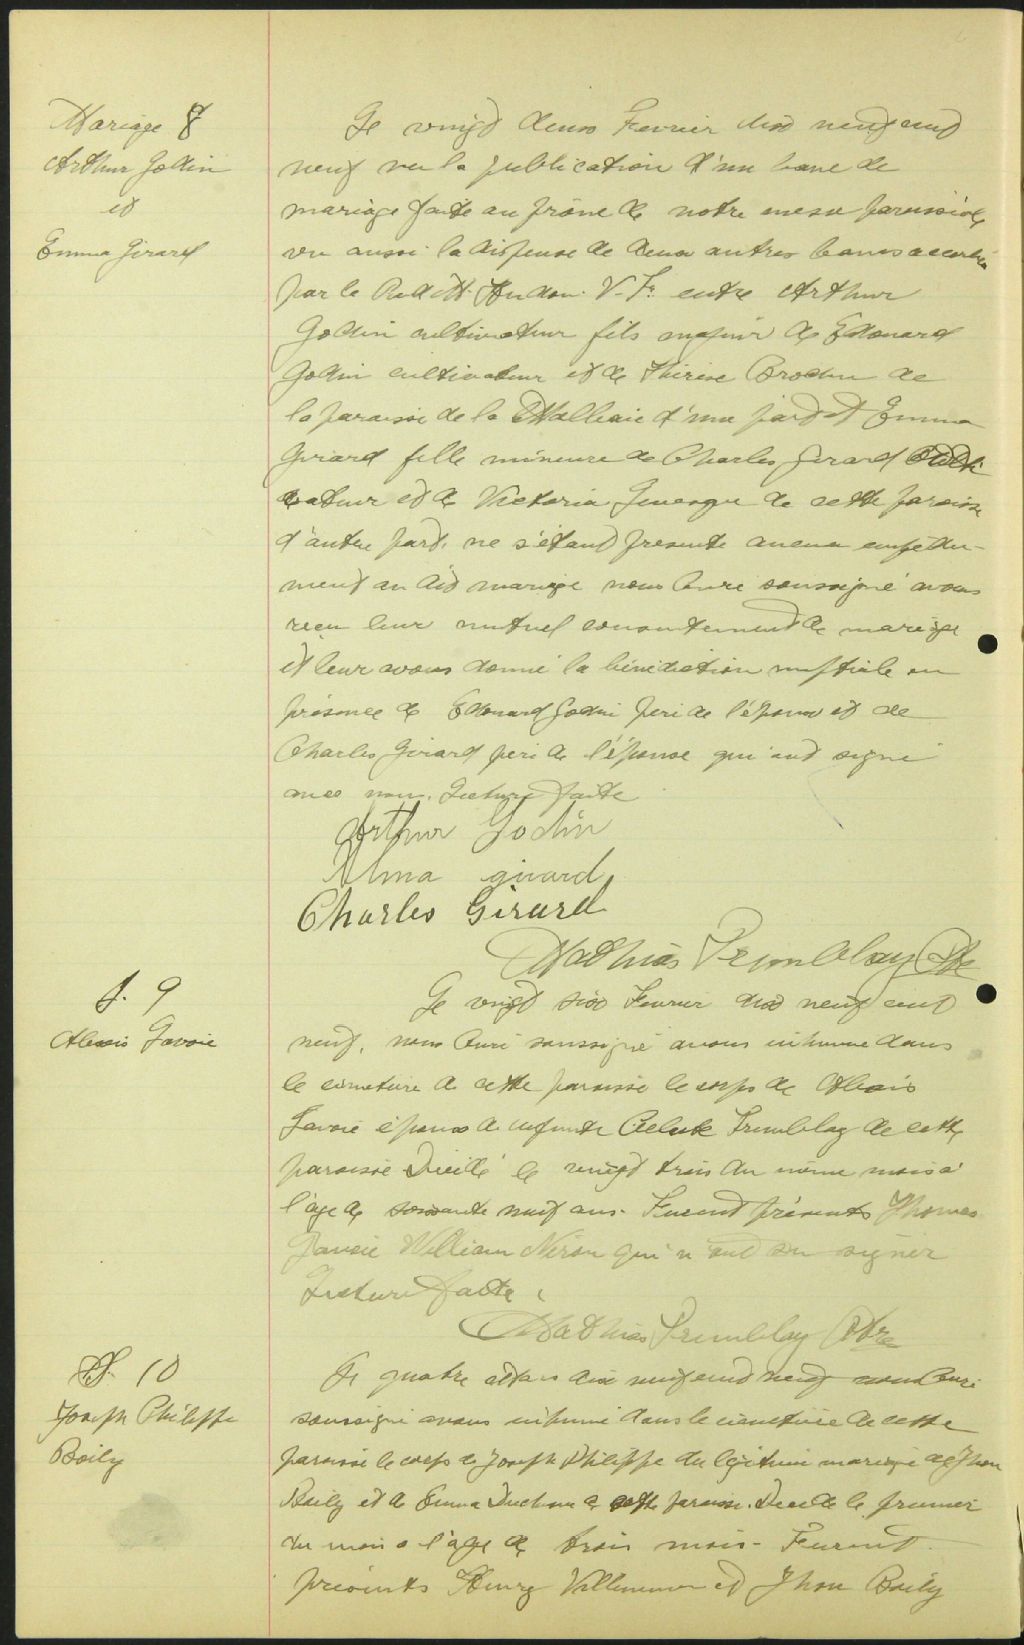 Mariage 8
Arthur Godin
et
Emma Girard
Le vingt deux Fevrier dix neuf cent
neuf vu la publication d'un banc de
mariage faite au prône de notre messe paroissiale
vu aussi la dispense de deux autres bancs accordée
par le Hudon V. F. entre Arthur
Godin cultivateur fils majeur de Edouard
Godin cultivateur et de Thérèse Brodeur de
la paroisse de la Malbaie d'une part et Emma
Girard fille mineure de Charles Girard culti
vateur et de Victoria de cette paroisse
d'autre part, ne s'étant presenté aucun empêche-
ment au dit mariage nous Curé soussigné avons
reçu leur mutuel consentement de mariage
et leur avons donné la bénédiction nuptiale en
présence de Edouard Godin père de l'époux et de
Charles Girard père de l'épouse qui ont signé
avec nous. Lecture faite
Arthur Godin
Alma girard
Charles Girard
Mathias Tremblay Ptre
S. 9
Alexis Savoie
Le vingt six Fevrier dix neuf cent
neuf, nous Curé soussigné avons inhumé dans
le cimetière de cette paroisse le corps de Alexis
Savoie époux de défunte Tremblay de cette
paroisse Décédé le vingt trois du même mois à
l'age de soixante neuf ans. Furent présents Thomas
Savoie William Néron qui n'ont su signer
Lecture faite.
Mathias Tremblay Ptre
S. 10
Joseph Philippe
Boily
Le quatre Mars dix neuf cent neuf nous Curé
soussigné avons inhumé dans le cimetière de cette
paroisse le corps de Joseph Philippe du légitime mariage de Jhon
Boily et de Emma Duchesne de cette paroisse. Décédé le premier
du mois a l'age de trois mois. Furent
présents Henry Villeneuve et Jhon Boily